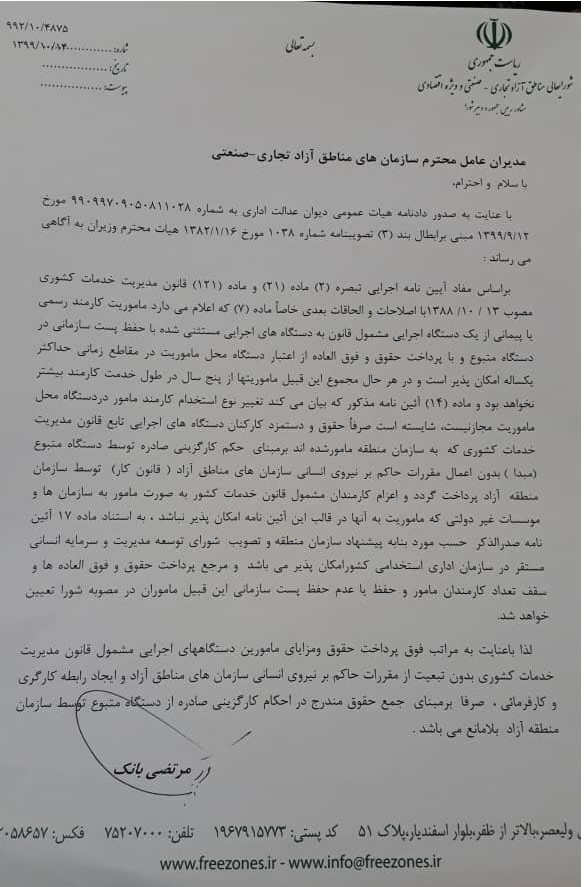 ۹۹۲/۱۰/۴۸۷۵
شماره: ۱۳۹۹/۱۰/۱۴
تاریخ:
پیوست:
بسمه تعالی
ریاست جمهوری
شورایعالی مناطق آزاد تجاری - صنعتی و ویژه اقتصادی
مشاور رییس جمهور و دبیر شورا
مدیران عامل محترم سازمان های مناطق آزاد تجاری-صنعتی
با سلام و احترام،
با عنایت به صدور دادنامه هیات عمومی دیوان عدالت اداری به شماره ۹۹۰۹۹۷۰۹۰۵۰۸۱۱۰۲۸ مورخ
۱۳۹۹/۹/۱۲ مبنی برابطال بند (۳) تصویبنامه شماره ۱۰۳۸ مورخ ۱۳۸۲/۱/۱۶ هیات محترم وزیران به آگاهی
می رساند :
براساس مفاد آیین نامه اجرایی تبصره (۲) ماده (۲۱) و ماده (۱۲۱) قانون مدیریت خدمات کشوری
مصوب ۱۳ / ۱۰ /۱۳۸۸با اصلاحات و الحاقات بعدی خاصاً ماده (۷) که اعلام می دارد ماموریت کارمند رسمی
یا پیمانی از یک دستگاه اجرایی مشمول قانون به دستگاه های اجرایی مستثنی شده با حفظ پست سازمانی در
دستگاه متبوع و با پرداخت حقوق و فوق العاده از اعتبار دستگاه محل ماموریت در مقاطع زمانی حداکثر
یکساله امکان پذیر است و در هر حال مجموع این قبیل ماموریتها از پنج سال در طول خدمت کارمند بیشتر
نخواهد بود و ماده (۱۴) آئین نامه مذکور که بیان می کند تغییر نوع استخدام کارمند مامور دردستگاه محل
ماموریت مجازنیست، شایسته است صرفاً حقوق و دستمزد کارکنان دستگاه های اجرایی تابع قانون مدیریت
خدمات کشوری که به سازمان منطقه مامورشده اند برمبنای حکم کارگزینی صادره توسط دستگاه متبوع
(مبدا ) بدون اعمال مقررات حاکم بر نیروی انسانی سازمان های مناطق آزاد ( قانون کار) توسط سازمان
منطقه آزاد پرداخت گردد و اعزام کارمندان مشمول قانون خدمات کشور به صورت مامور به سازمان ها و
موسسات غیر دولتی که ماموریت به آنها در قالب این آئین نامه امکان پذیر نباشد ، به استناد ماده ۱۷ آئین
نامه صدرالذکر حسب مورد بنابه پیشنهاد سازمان منطقه و تصویب شورای توسعه مدیریت و سرمایه انسانی
مستقر در سازمان اداری استخدامی کشورامکان پذیر می باشد و مرجع پرداخت حقوق و فوق العاده ها و
سقف تعداد کارمندان مامور و حفظ یا عدم حفظ پست سازمانی این قبیل ماموران در مصوبه شورا تعیین
خواهد شد.
لذا باعنایت به مراتب فوق پرداخت حقوق ومزایای مامورین دستگاههای اجرایی مشمول قانون مدیریت
خدمات کشوری بدون تبعیت از مقررات حاکم بر نیروی انسانی سازمان های مناطق آزاد و ایجاد رابطه کارگری
و کارفرمائی ، صرفا برمبنای جمع حقوق مندرج در احکام کارگزینی صادره از دستگاه متبوع توسط سازمان
منطقه آزاد بلامانع می باشد .
مرتضی بانک
ولیعصر،بالاتر از ظفر،بلوار اسفندیار،پلاک ۵۱ کد پستی: ۱۹۶۷۹۱۵۷۷۳ تلفن: ۷۵۲۰۷۰۰۰ فکس: ۲۰۵۸۶۵۷
www.freezones.ir - www.info@freezones.ir